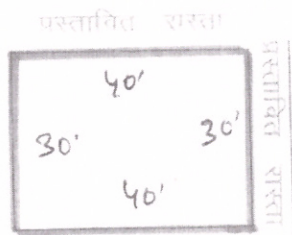 प्रस्तावित रास्ता
40'
30'
30'
40'
प्रस्तावित रास्ता